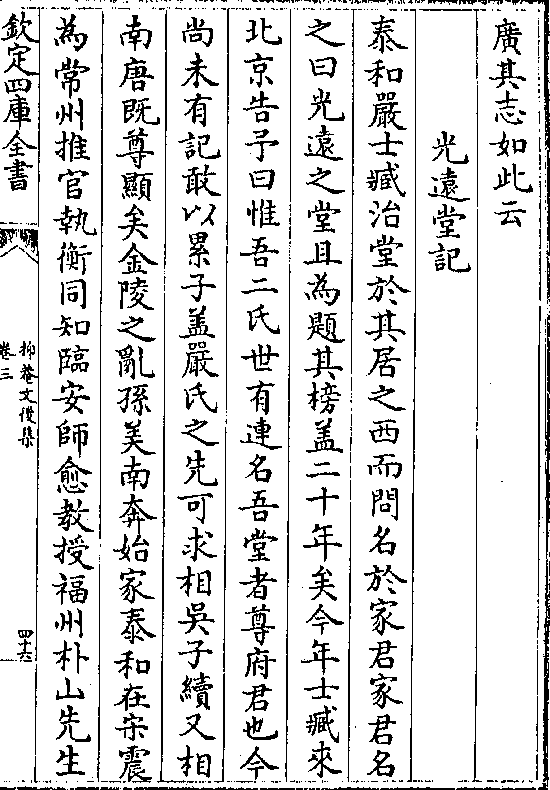 廣其志如此云
光遠堂記
泰和嚴士臧治堂於其居之西而問名於家君家君名
之曰光遠之堂且為題其榜蓋二十年矣今年士臧來
北京告予曰惟吾二氏世有連名吾堂者尊府君也今
尚未有記敢以累子蓋嚴氏之先可求相吳子續又相
南唐既尊顯矣金陵之亂孫美南奔始家泰和在宋震
為常州推官執衡同知臨安師愈教授福州朴山先生
欽定四庫全書
抑菴文後集
卷三
四十六